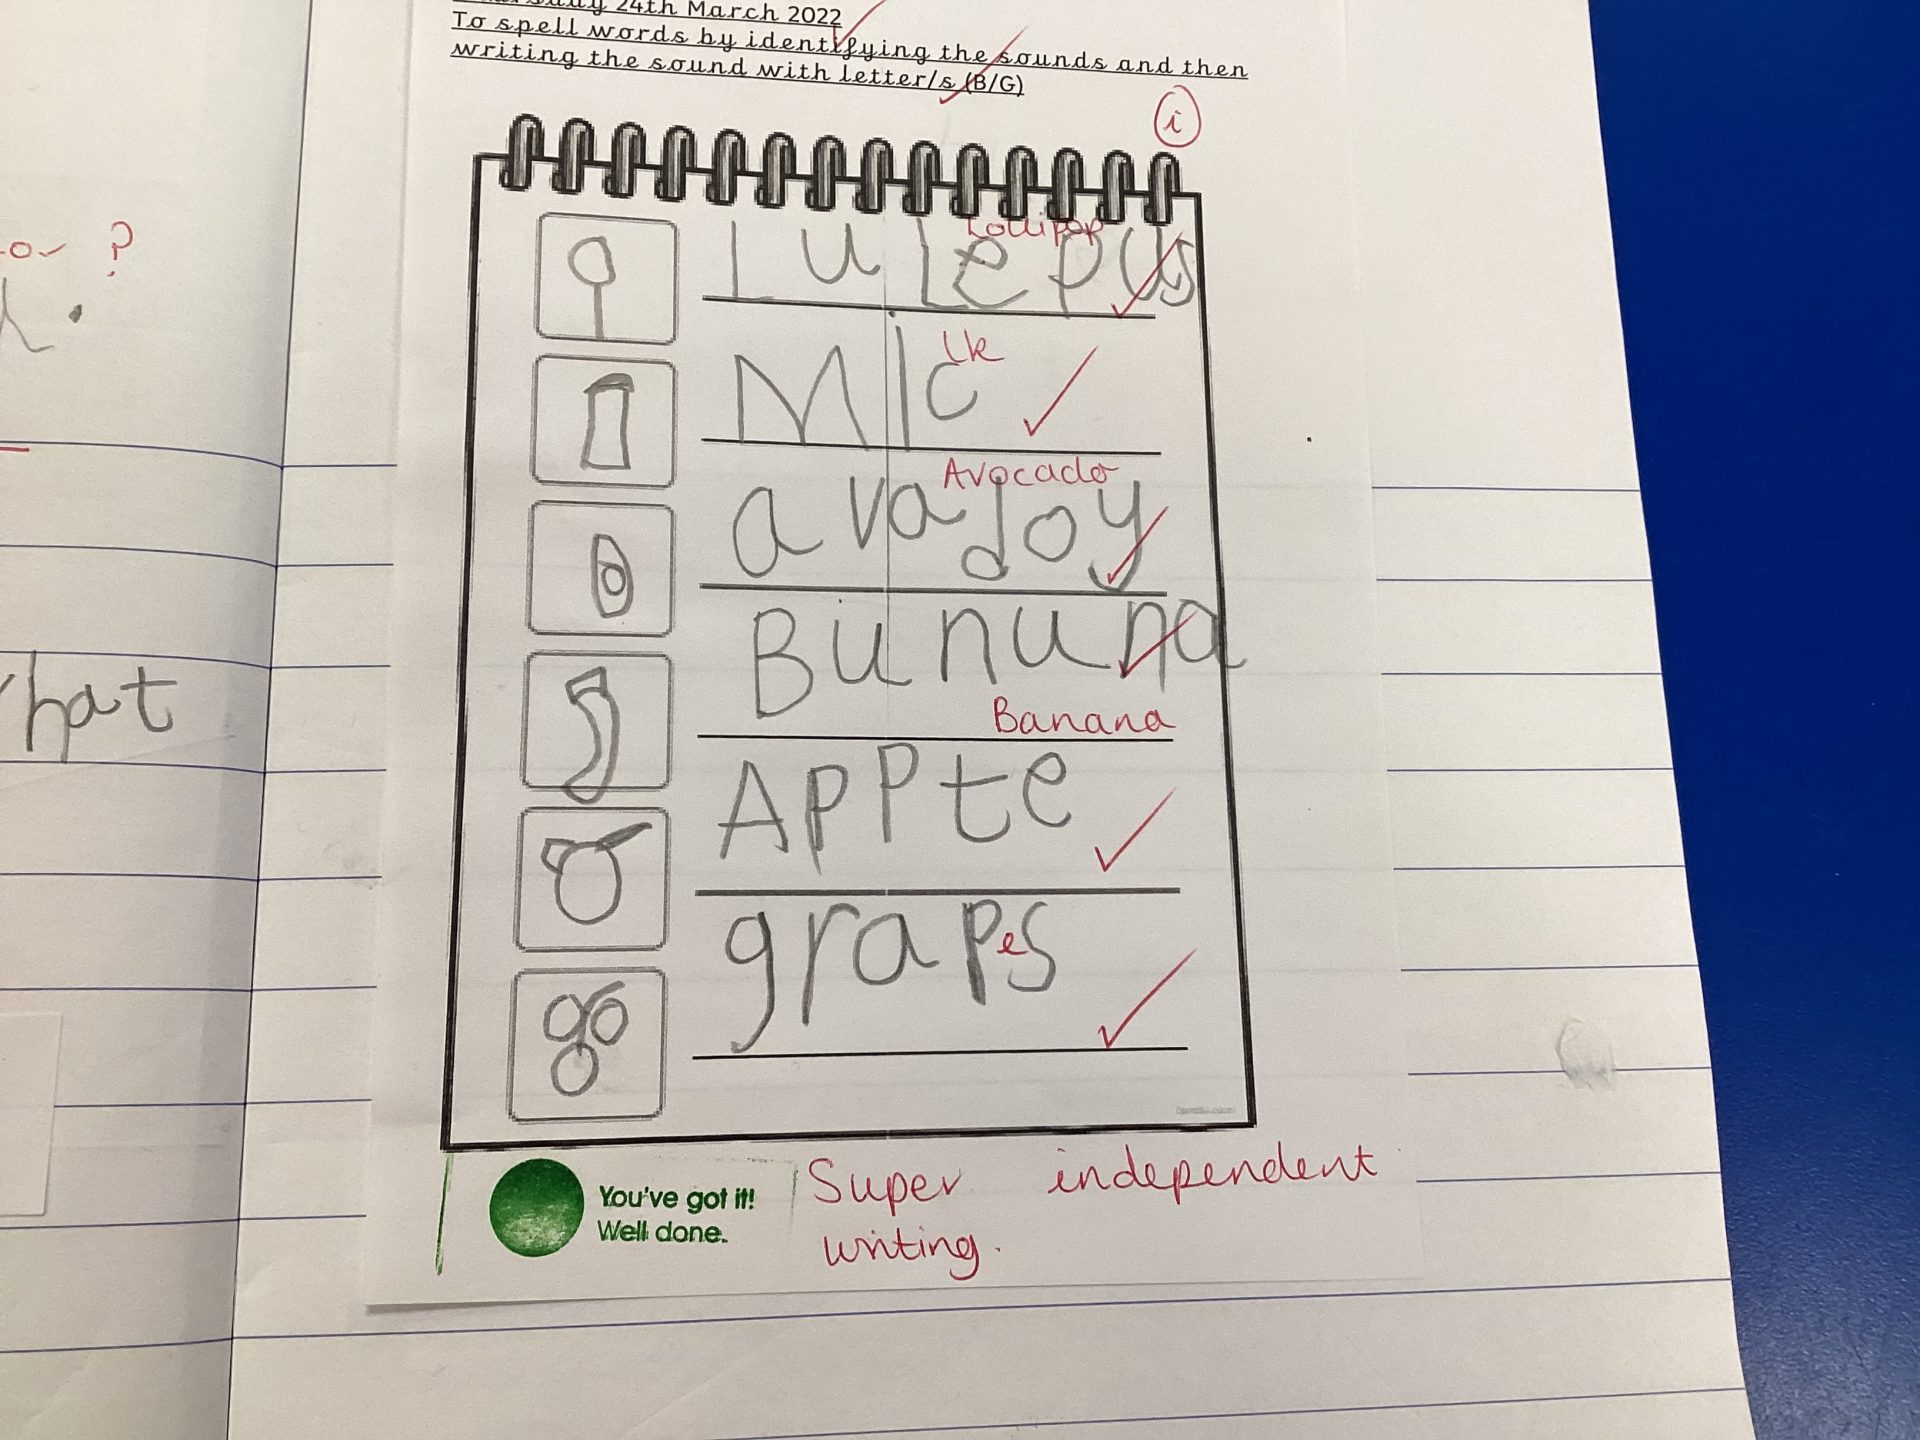 24th March 2022
To spell words by identifying the sounds and then
writing the sound with letter/s (B/G)
i
Lollipop
lulepus
lk
Mlc
Avocado
avadoy
Bununa
Banana
APPte
grapes
or ?
hat
You've got it!
Well done.
Super independent
writing.